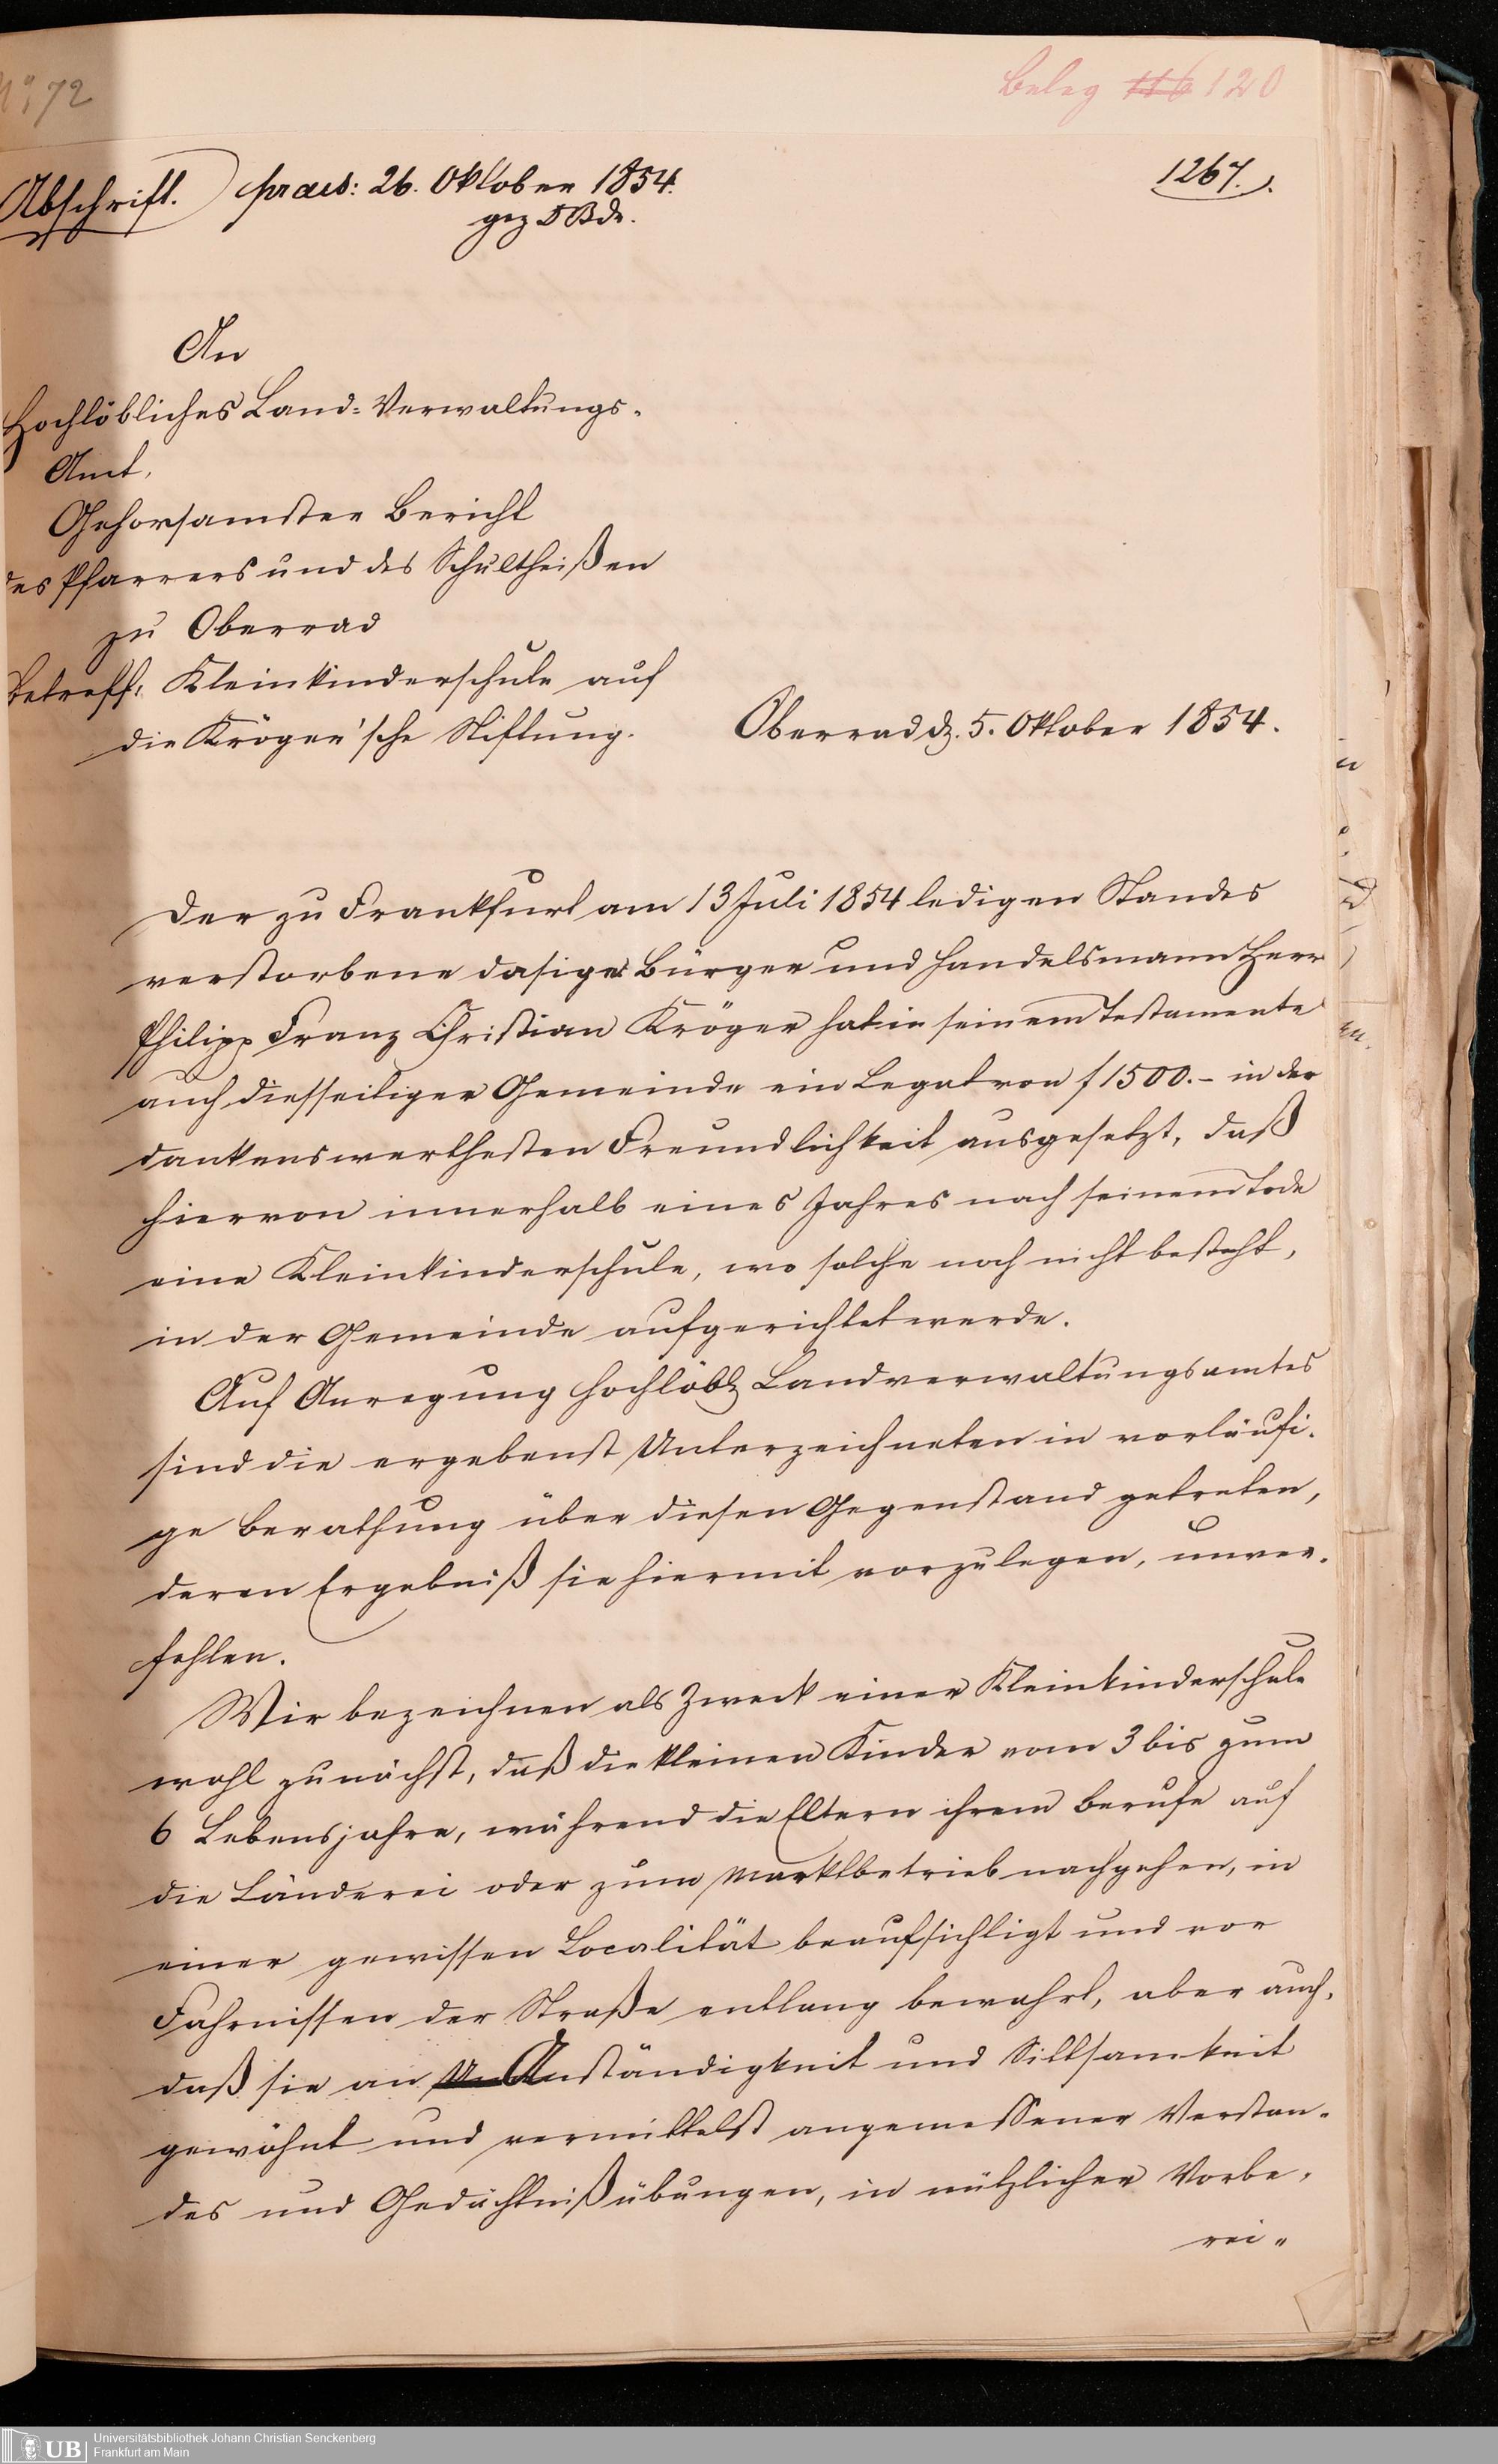 No 72
Beleg 116 120
Abschrift. praes: 26. Oktober 1854.
gez
1267.
An
Hochlöbliches Land-Verwaltungs-
Amt,
Gehorsamster Bericht
des Pfarrers und des Schultheißen
zu Oberrad
Betreff: Kleinkinderschule auf
die Kröger'sche Stiftung.
Oberrad d. 5. Oktober 1854.
Der zu Frankfurt am 13 Juli 1854 ledigen Standes
verstorbene dasiger Bürger und Handelsmann Herr
Philipp Franz Christian Kröger hat in seinem Testamente
auch diesseitiger Gemeinde ein Legat von f 1500.- in der
dankenswerthesten Freundlichkeit ausgesetzt, daß
hiervon innerhalb eines Jahres nach seinem Tode
eine Kleinkinderschule, wo solche noch nicht besteht,
in der Gemeinde aufgerichtet werde.
Auf Anregung Hochlöbl Landverwaltungsamtes
sind die ergebenst Unterzeichneten in vorläufi-
ge Berathung über diesen Gegenstand getreten,
deren Ergebniß sie hiermit vorzulegen, unver-
fehlen.
Wir bezeichnen als Zweck einer Kleinkinderschule
wohl zunächst, daß die kleinen Kinder vom 3 bis zum
6 Lebensjahre, während die Eltern ihrem Berufe auf
die Länderei oder zum Marktbetrieb nachgehen, in
einer gewissen Localität beaufsichtigt und vor
Fahrnissen der Straße entlang bewahrt, aber auch,
daß sie an Un Anständigkeit und Sittsamkeit
gewöhnt und vermittelst angemessener Verstan-
des und Gedächtnißübungen, in nützlicher Vorbe-
rei-
UB
Universitätsbibliothek Johann Christian Senckenberg
Frankfurt am Main